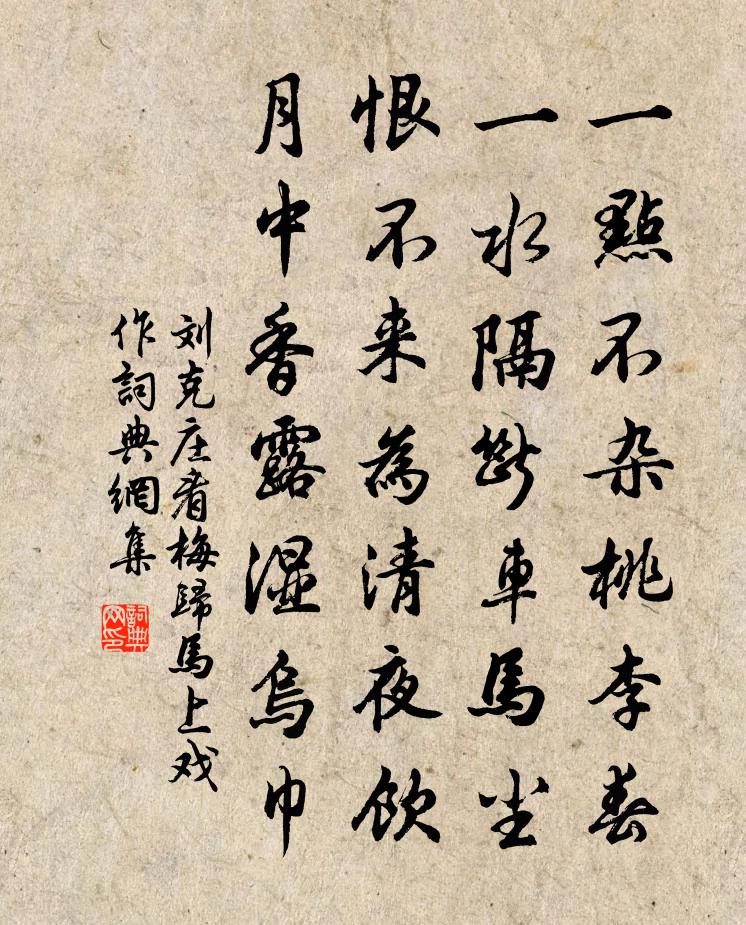 一點不杂桃李春
一水隔斷車馬尘
恨不来為清夜飲
月中香露湿烏巾
刘克庄看梅歸馬上戏
作詞典網集
詞典網印